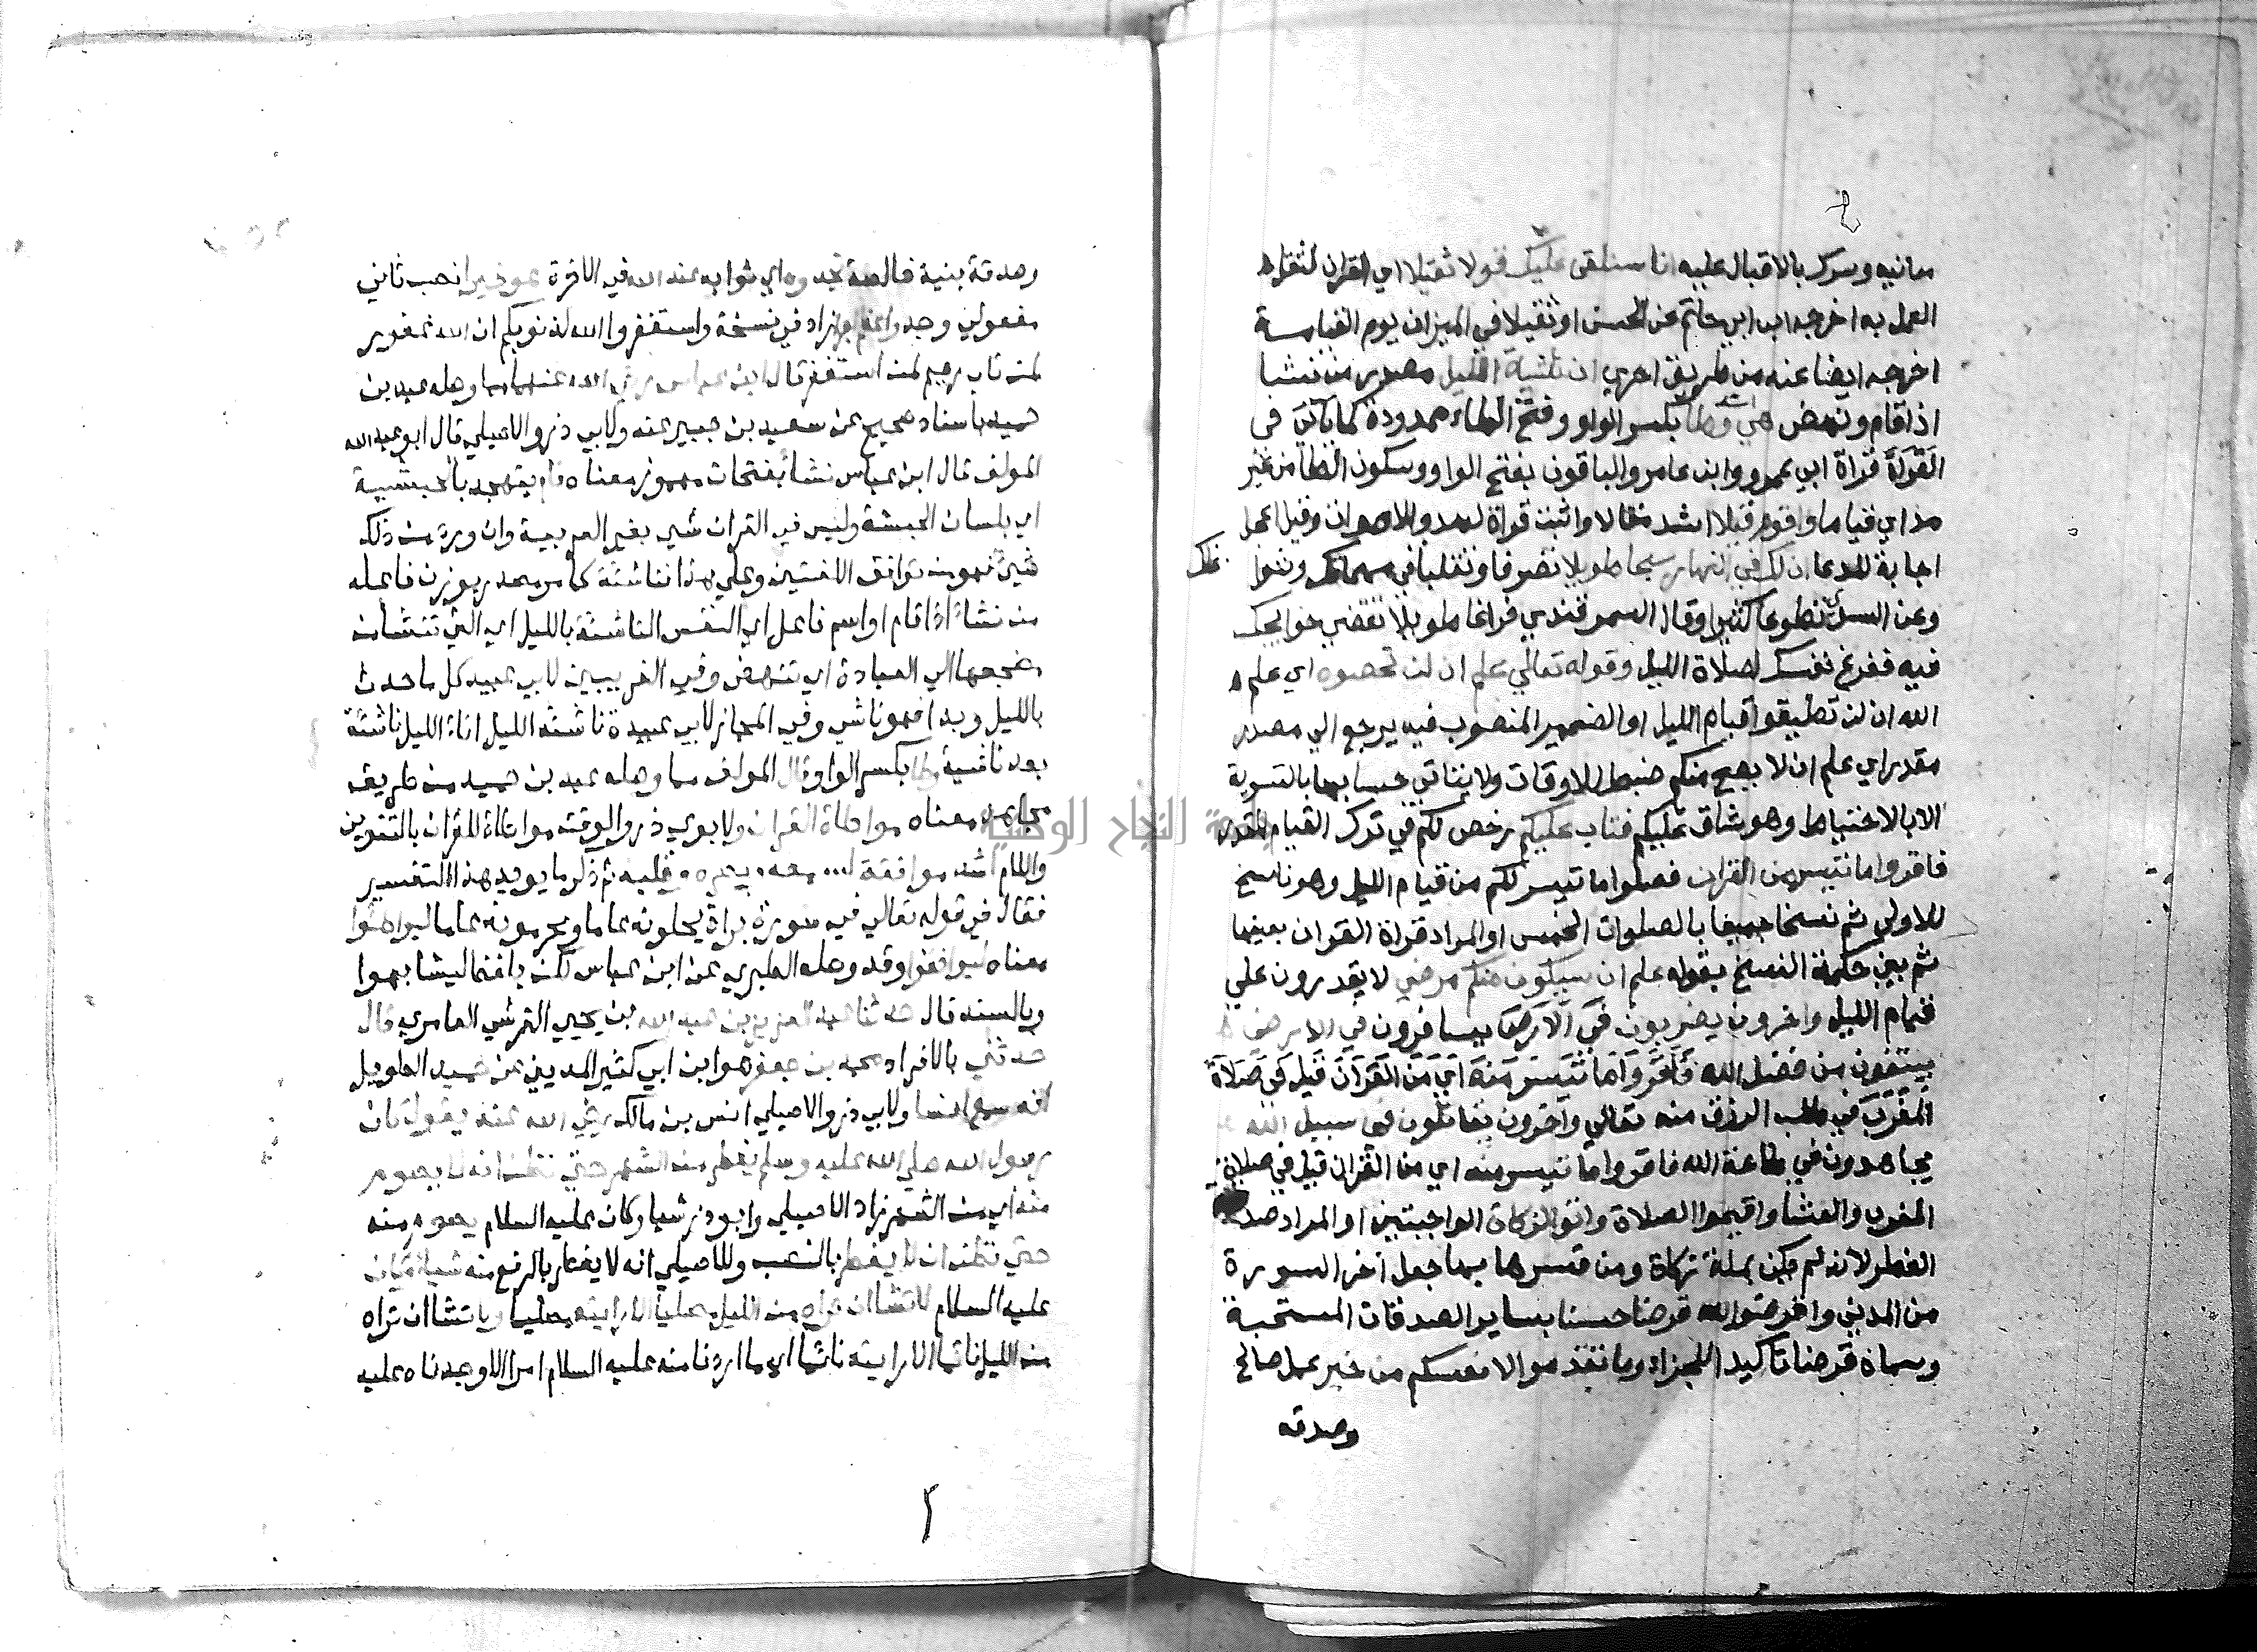 معانيه وسرك بالاقبال عليه انا سنلقى عليك قولا ثقيلا اي القران لثقل
العمل به اخرجه ابن ابي حاتم عن الحسن او ثقيلا في الميزان يوم القيامة
اخرجه ايضا عنه من طريق اخري ان ناشئة الليل مصدر من نشا
اذا قام ونهض هي اشد وطا بكسر الواو وفتح الطاء ممدودة كما ياتي في
القراة قراة ابي عمرو وابن عامر والباقون بفتح الواو وسكون الطا من غير
مد اي قياما واقوم قيلا اشد مقالا واثبت قراة لهدو الاصوات وقيل اعجل
اجابة للدعا ان لك في النهار سبحا طويلا تصرفا وتقلبا في مهماتك وشواغلك
وعن السدي تطوعا كثيرا وقال السمرقندي فراغا طويلا تقضي حوايجك
فيه ففرغ نفسك لصلاة الليل وقوله تعالي علم ان لن تحصوه اي علم
الله ان لن تطيقوا قيام الليل او الضمير المنصوب فيه يرجع الي مصدر
مقدر اي علم ان لا يصح منكم ضبط الاوقات ولا يتاتي حسابها بالتسوية
الا بالاحتياط وهو شاق عليكم فتاب عليكم رخص لكم في ترك القيام المقدر
فاقروا ما تيسر من القران فصلوا ما تيسر لكم من قيام الليل وهو ناسخ
للاول ثم نسخا جميعا بالصلوات الخمس او المراد قراة القران بعينها
ثم بين حكمة النسخ بقوله علم ان سيكون منكم مرضي لا يقدرون علي
قيام الليل واخرون يضربون في الارض يسافرون في الارض
يبتغون من فضل الله فاقروا ما تيسر منه اي من القران قيل في صلاة
المغرب في طلب الرزق منه تعالي واخرون يقاتلون في سبيل الله
يجاهدون في طاعة الله فاقروا ما تيسر منه اي من القران قيل في صلاة
المغرب والعشا واقيموا الصلاة واتوا الزكاة الواجبتين او المراد صدقة
الفطر لانه لم يكن بمكة زكاة ومن فسرها بها جعل اخر السورة
من المدني واقرضوا الله قرضا حسنا بساير الصدقات المستحبة
وسماه قرضا تاكيدا للجزاء وما تقدموا لانفسكم من خير عمل صالح
وصدقه
وصدقة بنية خالصة تجدوه اي ثوابه عند الله في الاخرة هو خيرا نصب ثاني
مفعولي وجد واعظم اجرا زاد في نسخة واستغفروا الله لذنوبكم ان الله غفور
لمن تاب رحيم لمن استغفر قال ابن عباس رضي الله عنهما مما وصله عبد بن
حميد باسناد صحيح عن سعيد بن جبير عنه ولابي ذر والاصيلي قال ابو عبد الله
المولف قال ابن عباس نشا بفتحات مهموز معناه قام يتهجد بالحبشية
اي بلسان الحبشة وليس في القران شي بغير العربية وان ورد من ذلك
شي فهو من توافق اللغتين وعلي هذا ناشئة كما مر مصدر بوزن فاعله
من نشا اذا قام او اسم فاعل اي النفس الناشئة بالليل اي التي تنشا من
مضجعها الي العبادة اي تنهض وفي الغريبين لابي عبيد كل ما حدث
بالليل وبدا فهو ناشي وفي المجاز لابي عبيدة ناشئة الليل اناء الليل ناشئة
بعد ناشئة وطا بكسر الواو قال المولف مما وصله عبد بن حميد من طريق
مجاهد معناه مواطاة القران ولابوي ذر والوقت مواطاة للقران بالتنوين
واللام اشد موافقة لسمعه وبصره وقلبه ثم ذكر ما يويد هذا التفسير
فقال في قوله تعالي في سورة براة يحلونه عاما ويحرمونه عاما ليواطئوا
معناه ليوافقوا وقد وصله الطبري عن ابن عباس لكن بلفظ ليشابهوا
وبالسند قال حدثنا عبد العزيز بن عبد الله بن يحيي القرشي العامري قال
حدثني بالافراد محمد بن جعفر هو ابن ابي كثير المديني عن حميد الطويل
انه سمع انسا ولابي ذر والاصيلي انس بن مالك رضي الله عنه يقول كان
رسول الله صلي الله عليه وسلم يفطر من الشهر حتي نظن انه لا يصوم
منه اي من الشهر زاد الاصيلي وابو ذر شيا وكان عليه السلام يصوم منه
حتي نظن ان لا يفطر بالنصب وللاصيلي انه لا يفطر بالرفع منه شيا وكان
عليه السلام لا تشا ان تراه من الليل مصليا الا رايته مصليا ولا تشا ان تراه
من الليل نائما الا رايته نائما اي ما اردنا منه عليه السلام امرا الا وجدناه عليه
جامعة النجاح الوطنية